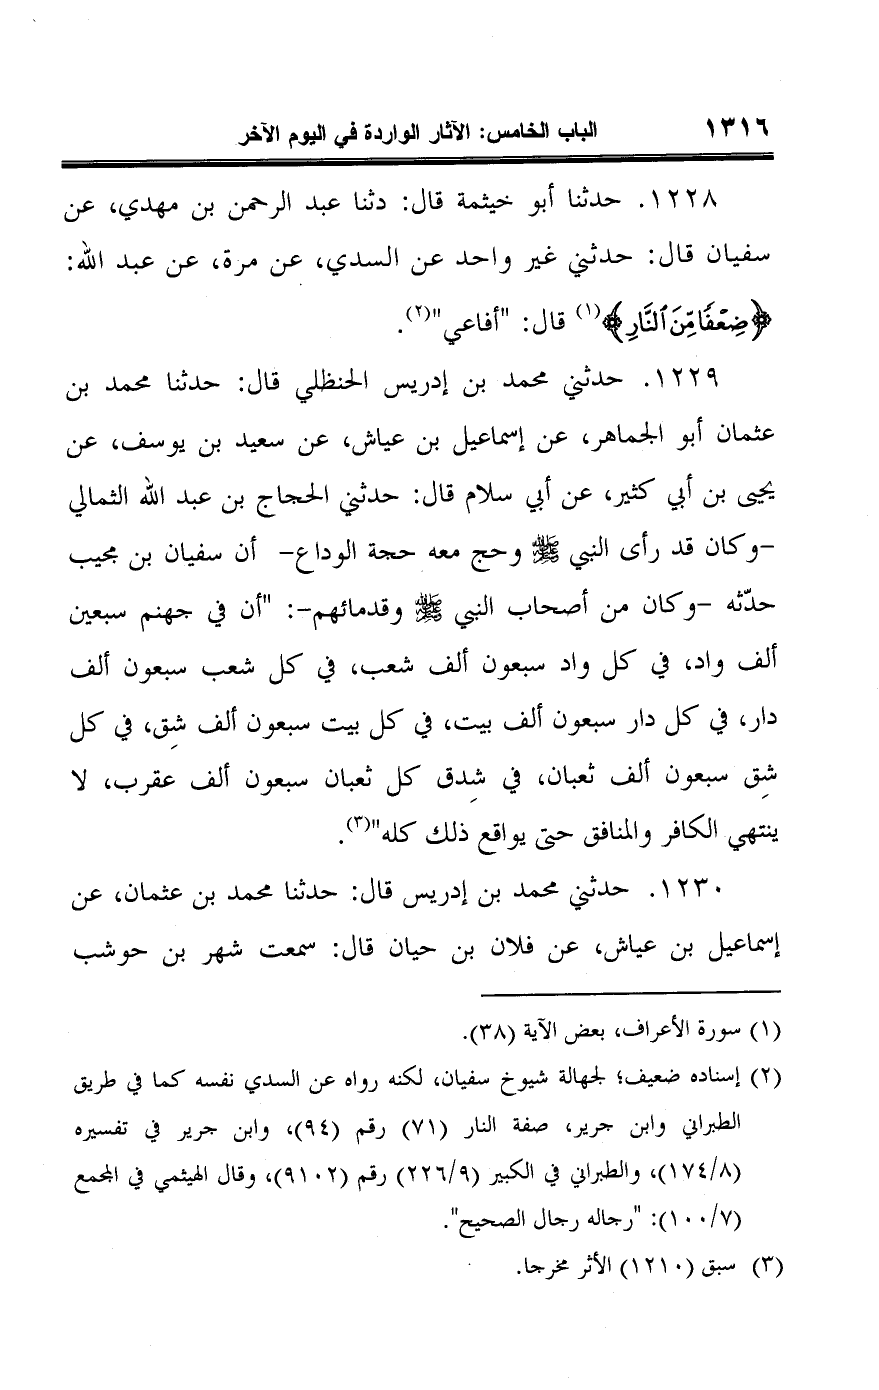 ١٣١٦ الباب الخامس: الآثار الواردة في اليوم الآخر
١٢٢٨. حدثنا أبو خيثمة قال: دثنا عبد الرحمن بن مهدي، عن
سفيان قال: حدثني غير واحد عن السدي، عن مرة، عن عبد الله:
﴿ضِعْفًا مِّنَ ٱلنَّارِ﴾(١) قال: "أفاعي"(٢).
١٢٢٩. حدثني محمد بن إدريس الحنظلي قال: حدثنا محمد بن
عثمان أبو الجماهر، عن إسماعيل بن عياش، عن سعيد بن يوسف، عن
يحيى بن أبي كثير، عن أبي سلام قال: حدثني الحجاج بن عبد الله الثمالي
-وكان قد رأى النبي ﷺ وحج معه حجة الوداع- أن سفيان بن مجيب
حدّثه -وكان من أصحاب النبي ﷺ وقدمائهم-: "أن في جهنم سبعين
ألف واد، في كل واد سبعون ألف شعب، في كل شعب سبعون ألف
دار، في كل دار سبعون ألف بيت، في كل بيت سبعون ألف شِق، في كل
شِق سبعون ألف ثعبان، في شِدق كل ثعبان سبعون ألف عقرب، لا
ينتهي الكافر والمنافق حتى يواقع ذلك كله"(٣).
١٢٣٠. حدثني محمد بن إدريس قال: حدثنا محمد بن عثمان، عن
إسماعيل بن عياش، عن فلان بن حيان قال: سمعت شهر بن حوشب
(١) سورة الأعراف، بعض الآية (٣٨).
(٢) إسناده ضعيف؛ لجهالة شيوخ سفيان، لكنه رواه عن السدي نفسه كما في طريق
الطبراني وابن جرير، صفة النار (٧١) رقم (٩٤)، وابن جرير في تفسيره
(١٧٤/٨)، والطبراني في الكبير (٢٢٦/٩) رقم (٩١٠٢)، وقال الهيثمي في المجمع
(١٠٠/٧): "رجاله رجال الصحيح".
(٣) سبق (١٢١٠) الأثر مخرجا.